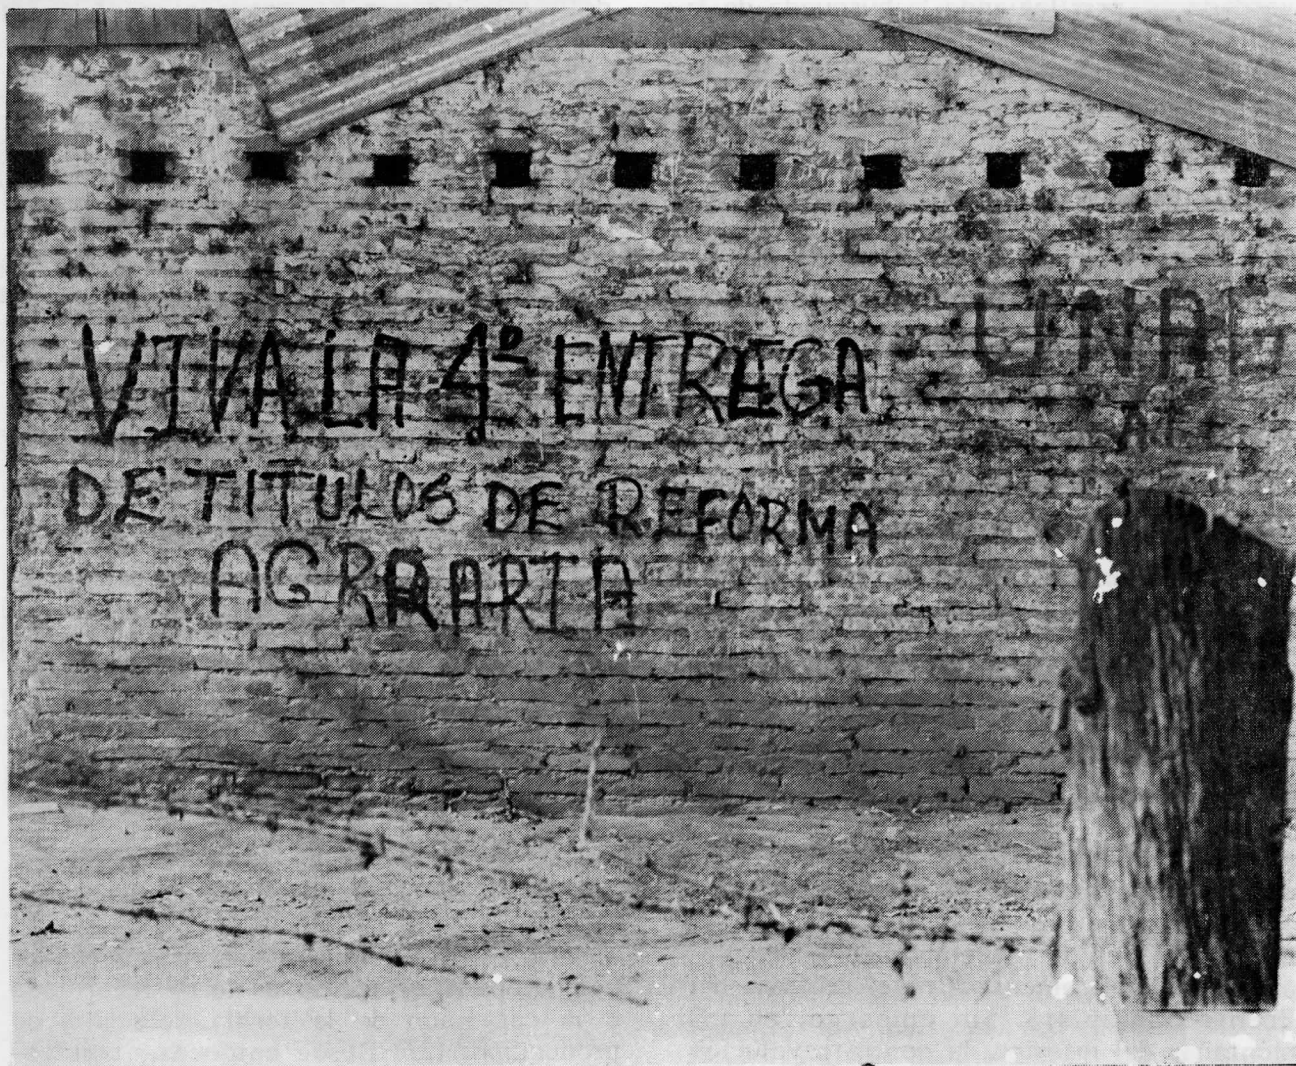 VIVA LA 4º ENTREGA
DE TITULOS DE REFORMA
AGRARARIA
UNAG